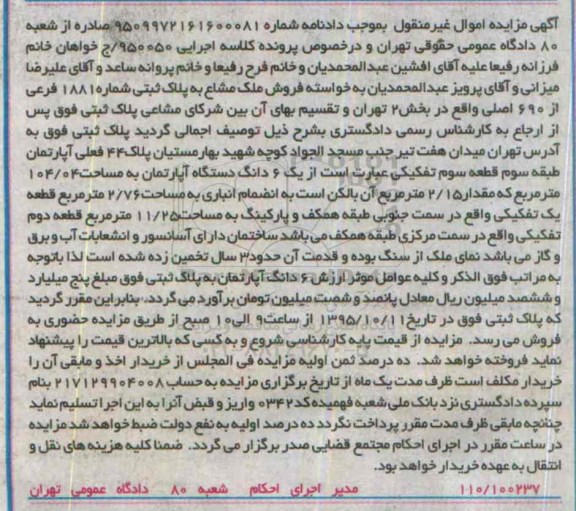 آگهی مزایده اموال غیرمنقول بموجب دادنامه شماره ۹۵۰۹۹۷۲۱۶۱۶۰۰۰۸۱ صادره از شعبه
۸۰ دادگاه عمومی حقوقی تهران و درخصوص پرونده کلاسه اجرایی ۹۵۰۰۵۰/ج خواهان خانم
فرزانه رفیعا علیه آقای افشین عبدالمحمدیان و خانم فرح رفیعا و خانم پروانه ساعد و آقای علیرضا
میزانی و آقای پرویز عبدالمحمدیان به خواسته فروش ملک مشاع به پلاک ثبتی شماره ۱۸۸۱ فرعی
از ۶۹۰ اصلی واقع در بخش۲ تهران و تقسیم بهای آن بین شرکای مشاعی پلاک ثبتی فوق پس
از ارجاع به کارشناس رسمی دادگستری بشرح ذیل توصیف اجمالی گردید پلاک ثبتی فوق به
آدرس تهران میدان هفت تیر جنب مسجد الجواد کوچه شهید بهارمستیان پلاک۴۴ فعلی آپارتمان
طبقه سوم قطعه سوم تفکیکی عبارت است از یک ۶ دانگ دستگاه آپارتمان به مساحت۱۰۴/۰۴
مترمربع که مقدار۲/۱۵ مترمربع آن بالکن است به انضمام انباری به مساحت۲/۷۶ مترمربع قطعه
یک تفکیکی واقع در سمت جنوبی طبقه همکف و پارکینگ به مساحت۱۱/۲۵ مترمربع قطعه دوم
تفکیکی واقع در سمت مرکزی طبقه همکف می باشد ساختمان دارای آسانسور و انشعابات آب و برق
و گاز می باشد نمای ملک از سنگ بوده و قدمت آن حدود۳ سال تخمین زده شده است لذا باتوجه
به مراتب فوق الذکر و کلیه عوامل موثر ارزش ۶ دانگ آپارتمان به پلاک ثبتی فوق مبلغ پنج میلیارد
و ششصد میلیون ریال معادل پانصد و شصت میلیون تومان برآورد می گردد، بنابراین مقرر گردید
که پلاک ثبتی فوق در تاریخ۱۳۹۵/۱۰/۱۱ از ساعت۹ الی۱۰ صبح از طریق مزایده حضوری به
فروش می رسد. مزایده از قیمت پایه کارشناسی شروع و به کسی که بالاترین قیمت را پیشنهاد
نماید فروخته خواهد شد. ده درصد ثمن اولیه مزایده فی المجلس از خریدار اخذ و مابقی آن را
خریدار مکلف است ظرف مدت یک ماه از تاریخ برگزاری مزایده به حساب ۲۱۷۱۲۹۹۰۴۰۰۸ بنام
سپرده دادگستری نزد بانک ملی شعبه فهمیده کد۰۳۴۲ واریز و قبض آنرا به این اجرا تسلیم نماید
چنانچه مابقی ظرف مدت مقرر پرداخت نگردد ده درصد اولیه به نفع دولت ضبط خواهد شد مزایده
در ساعت مقرر در اجرای احکام مجتمع قضایی صدر برگزار می گردد. ضمنا کلیه هزینه های نقل و
انتقال به عهده خریدار خواهد بود.
۱۱۰/۱۰۰۲۳۷ مدیر اجرای احکام شعبه ۸۰ دادگاه عمومی تهران